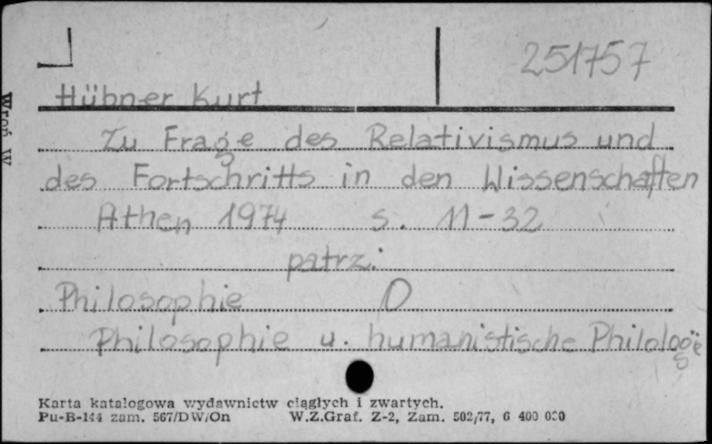 251757
Hübner Kurt
Zu Frage des Relativismus und
des Fortschritts in den Wissenschaften
Athen 1974 s. 11-32
patrz:
Philosophie O
Philosophie u. humanistische Philologië
Karta katalogowa wydawnictw ciągłych i zwartych.
Pu-B-144 zam. 567/DW/On W.Z.Graf. Z-2, Zam. 502/77, 6 400 000